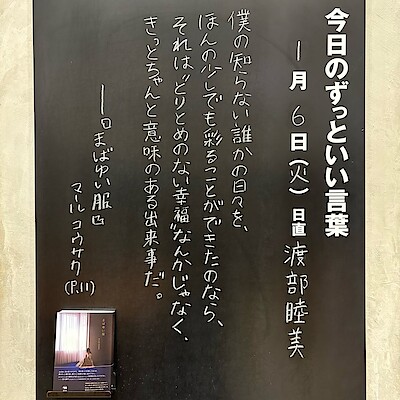 今日のずっといい言葉
1月6日(火) 日直 渡部睦美
僕の知らない誰かの日々を、
ほんの少しでも彩ることができたのなら、
それは"とりとめのない幸福"なんかじゃなく、
きっとちゃんと意味のある出来事だ。
まばゆい服
マール コウサカ
(P.11)